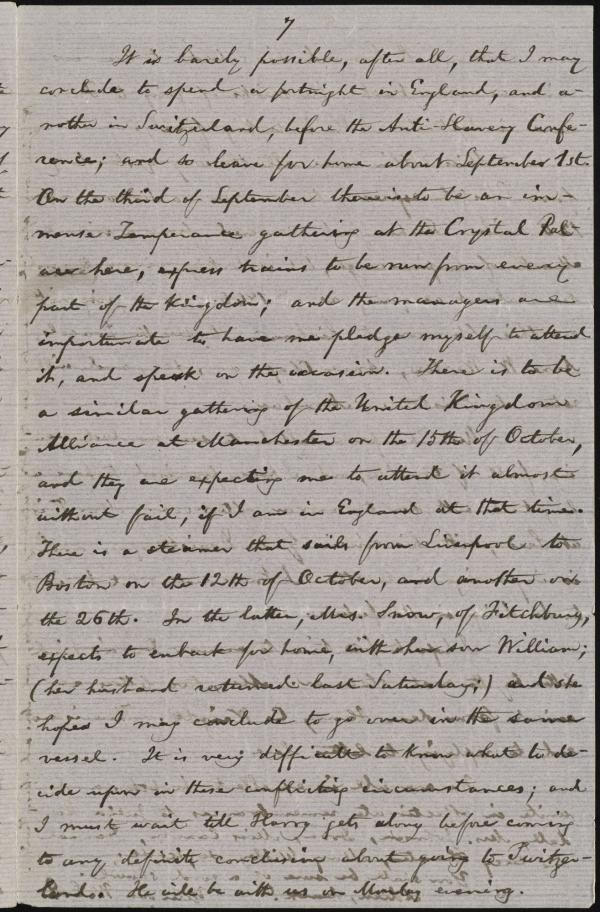 7
It is barely possible, after all, that I may
conclude to spend a fortnight in England, and a-
nother in Switzerland, before the Anti-Slavery Confe-
rence; and so leave for home about September 1st.
On the third of September there is to be an im-
mense Temperance gathering at the Crystal Pal-
ace here, express trains to be run from every
part of the kingdom; and the managers are
importunate to have me pledge myself to attend
it, and speak on the occasion. There is to be
a similar gathering of the United Kingdom
Alliance at Manchester on the 15th of October,
and they are expecting me to attend it almost
without fail, if I am in England at that time.
There is a steamer that sails from Liverpool to
Boston on the 12th of October, and another on
the 26th. In the latter, Mrs. Snow, of Fitchburg,
expects to embark for home, with her son William;
(her husband returned last Saturday;) and she
hopes I may conclude to go over in the same
vessel. It is very difficult to know what to de-
cide upon in these conflicting circumstances; and
I must wait till Harry gets along before coming
to any definite conclusion about going to Switzer-
land. He will be with us on Monday evening.